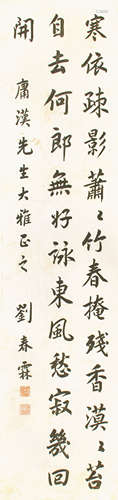 寒依疎影蕭〻竹春掩殘香漠〻苔
自去何郎無好詠東風愁寂幾回
開
庸漢先生大雅正之
劉春霖